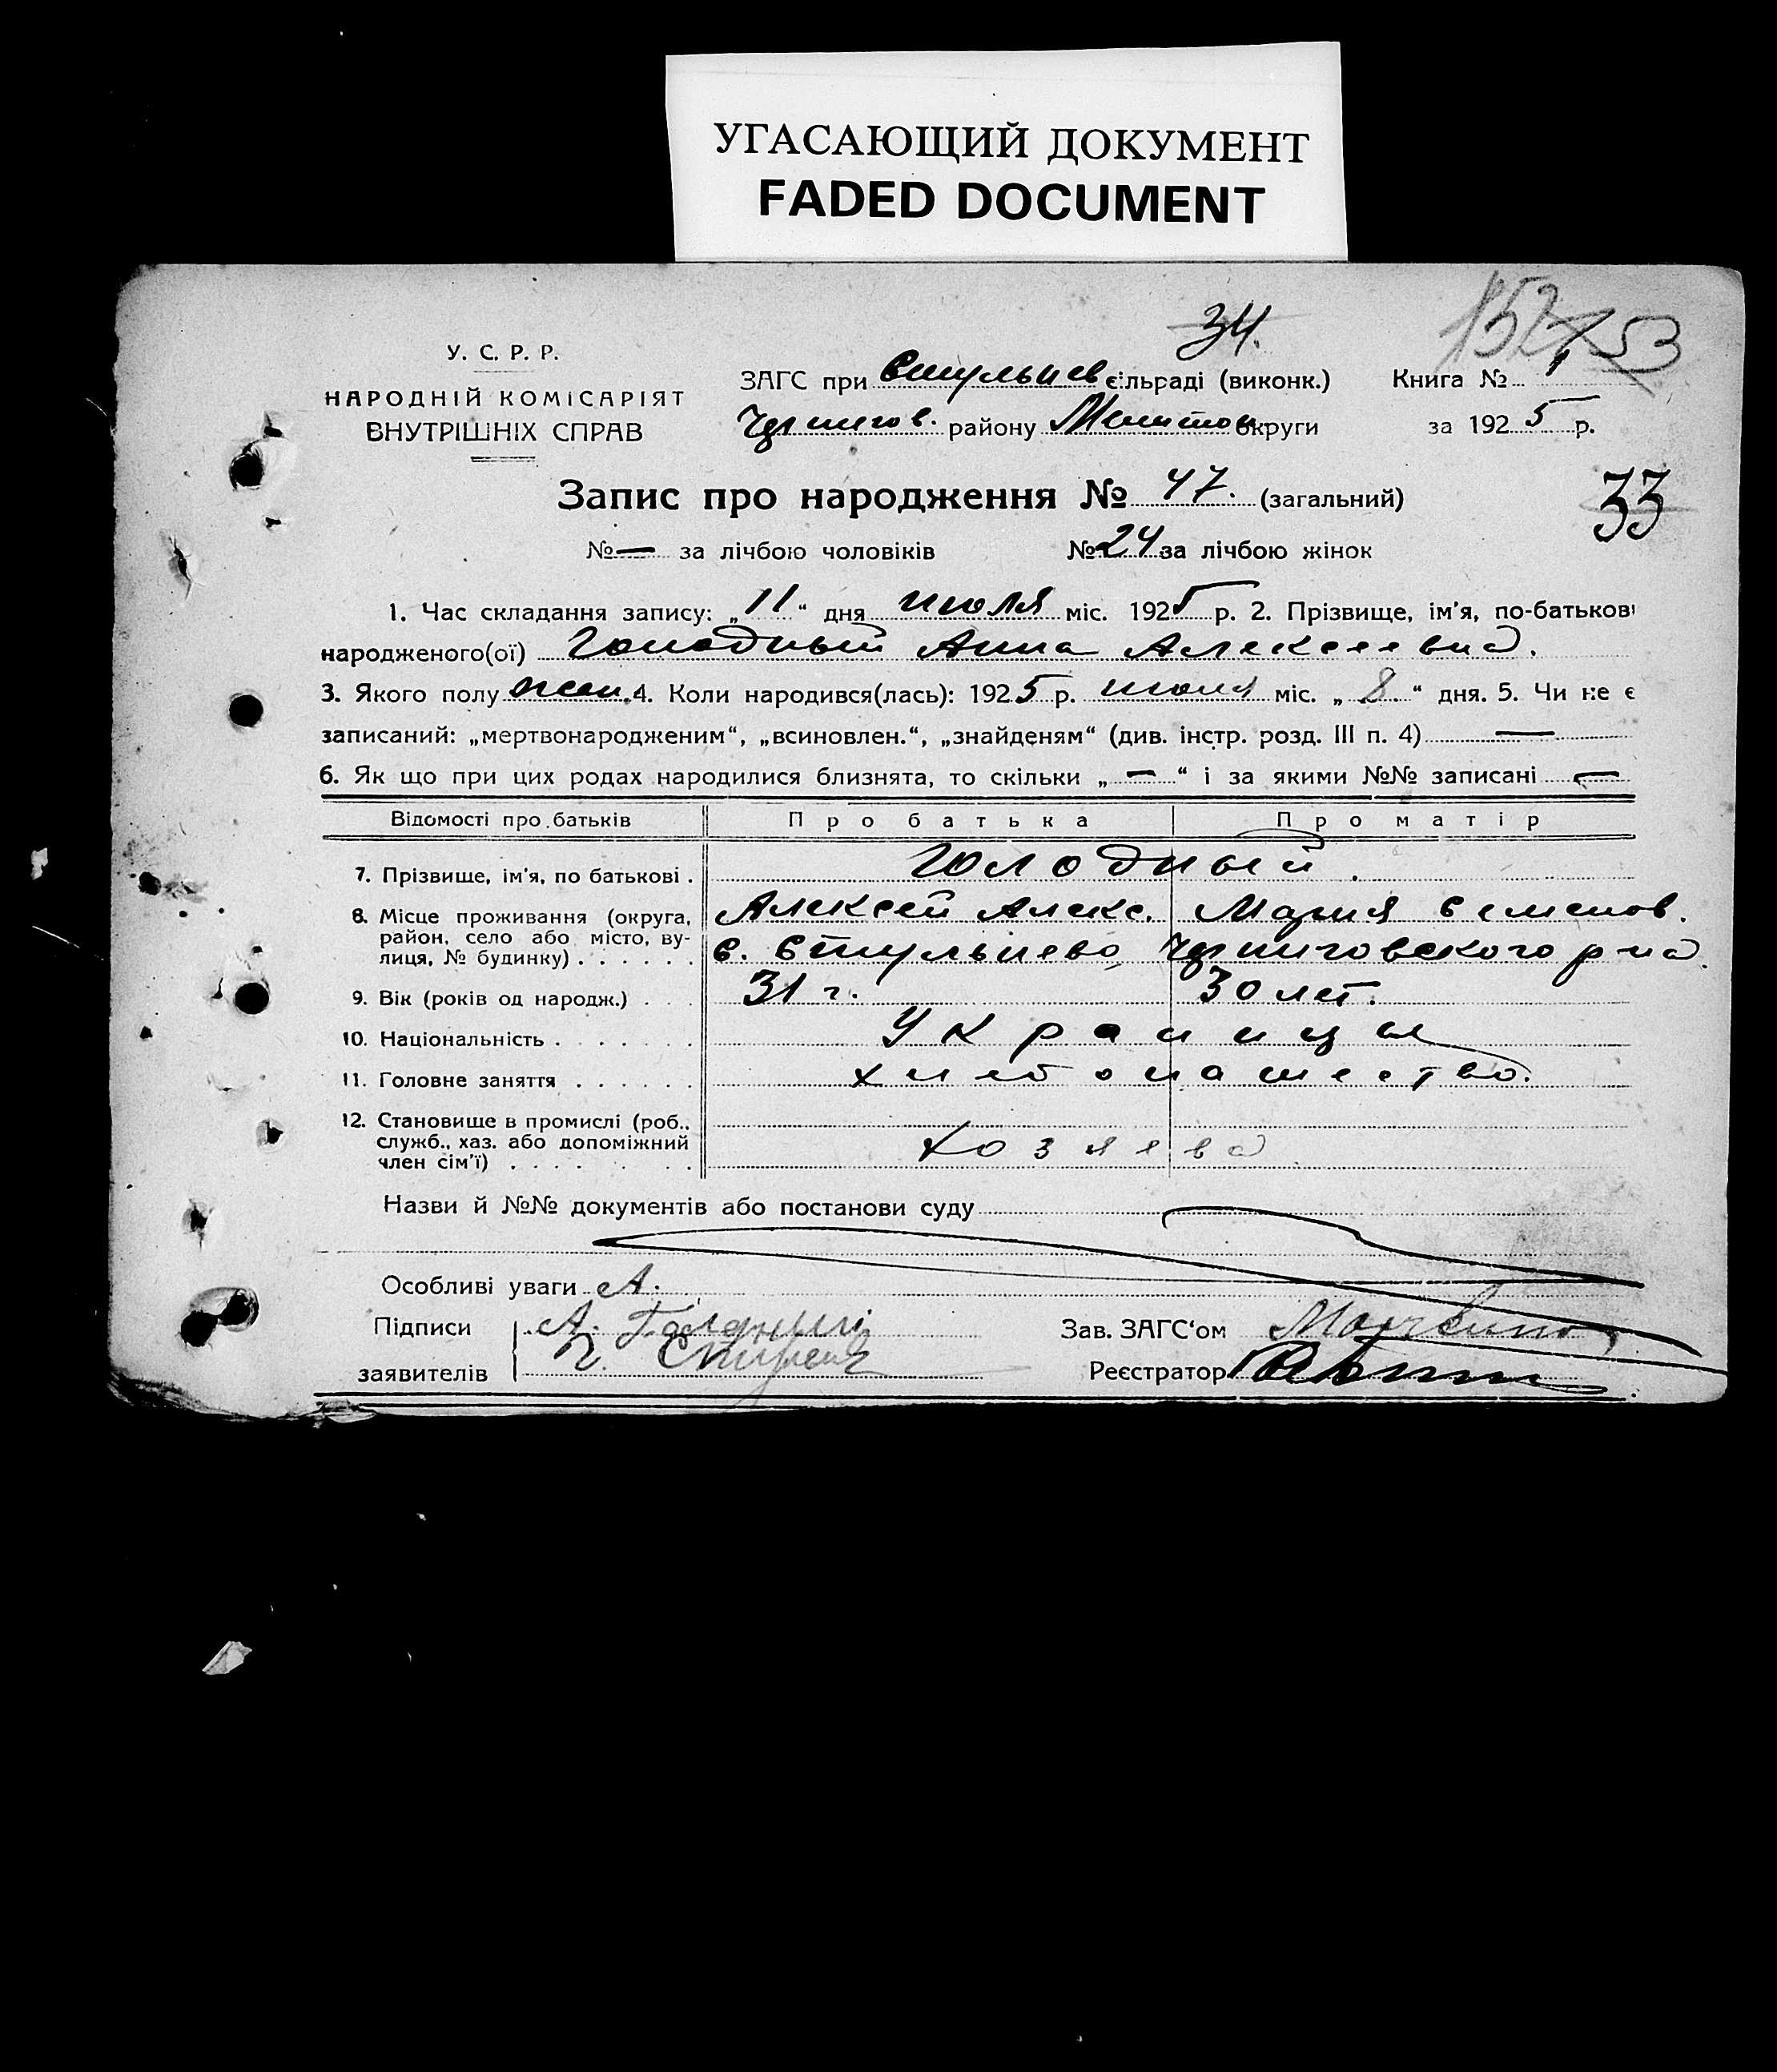 УГАСАЮЩИЙ ДОКУМЕНТ
FADED DOCUMENT
34.
152 153
У. С. Р. Р.
НАРОДНІЙ КОМІСАРІЯТ
ВНУТРІШНІХ СПРАВ
ЗАГС при Стульнев сільраді (виконк.) Книга № 1
Чернигов. району Мелитоп округи за 1925 р.
Запис про народження № 47. (загальний)
33
№ — за лічбою чоловіків № 24 за лічбою жінок
1. Час складання запису: „11“ дня июля міс. 1925 р. 2. Прізвище, ім'я, по-батькові
народженого(ої) Голодный Анна Алексеевна.
3. Якого полу жен. 4. Коли народився(лась): 1925 р. июля міс. „8“ дня. 5. Чи не є
записаний: „мертвонародженим“, „всиновлен.“, „знайденям“ (див. інстр. розд. III п. 4) —
6. Як що при цих родах народилися близнята, то скільки „—“ і за якими №№ записані —
Відомості про батьків Про батька Про матір
7. Прізвище, ім'я, по батькові . Голодный.
8. Місце проживання (округа, Алексей Алекс. Мария Семенов.
район, село або місто, ву-
лиця, № будинку) . . . . . . с. Стульнево, Черниговского р-на.
9. Вік (років од народж.) . . . 31 г. 30 лет.
10. Національність . . . . . . . Украинцы
11. Головне заняття . . . . . . хлебопашество.
12. Становище в промислі (роб.,
служб., хаз. або допоміжний
член сім'ї) . . . . . . . Хозяева
Назви й №№ документів або постанови суду
Особливі уваги А.
Підписи А. Голодный Зав. ЗАГС'ом
заявителів Реєстратор